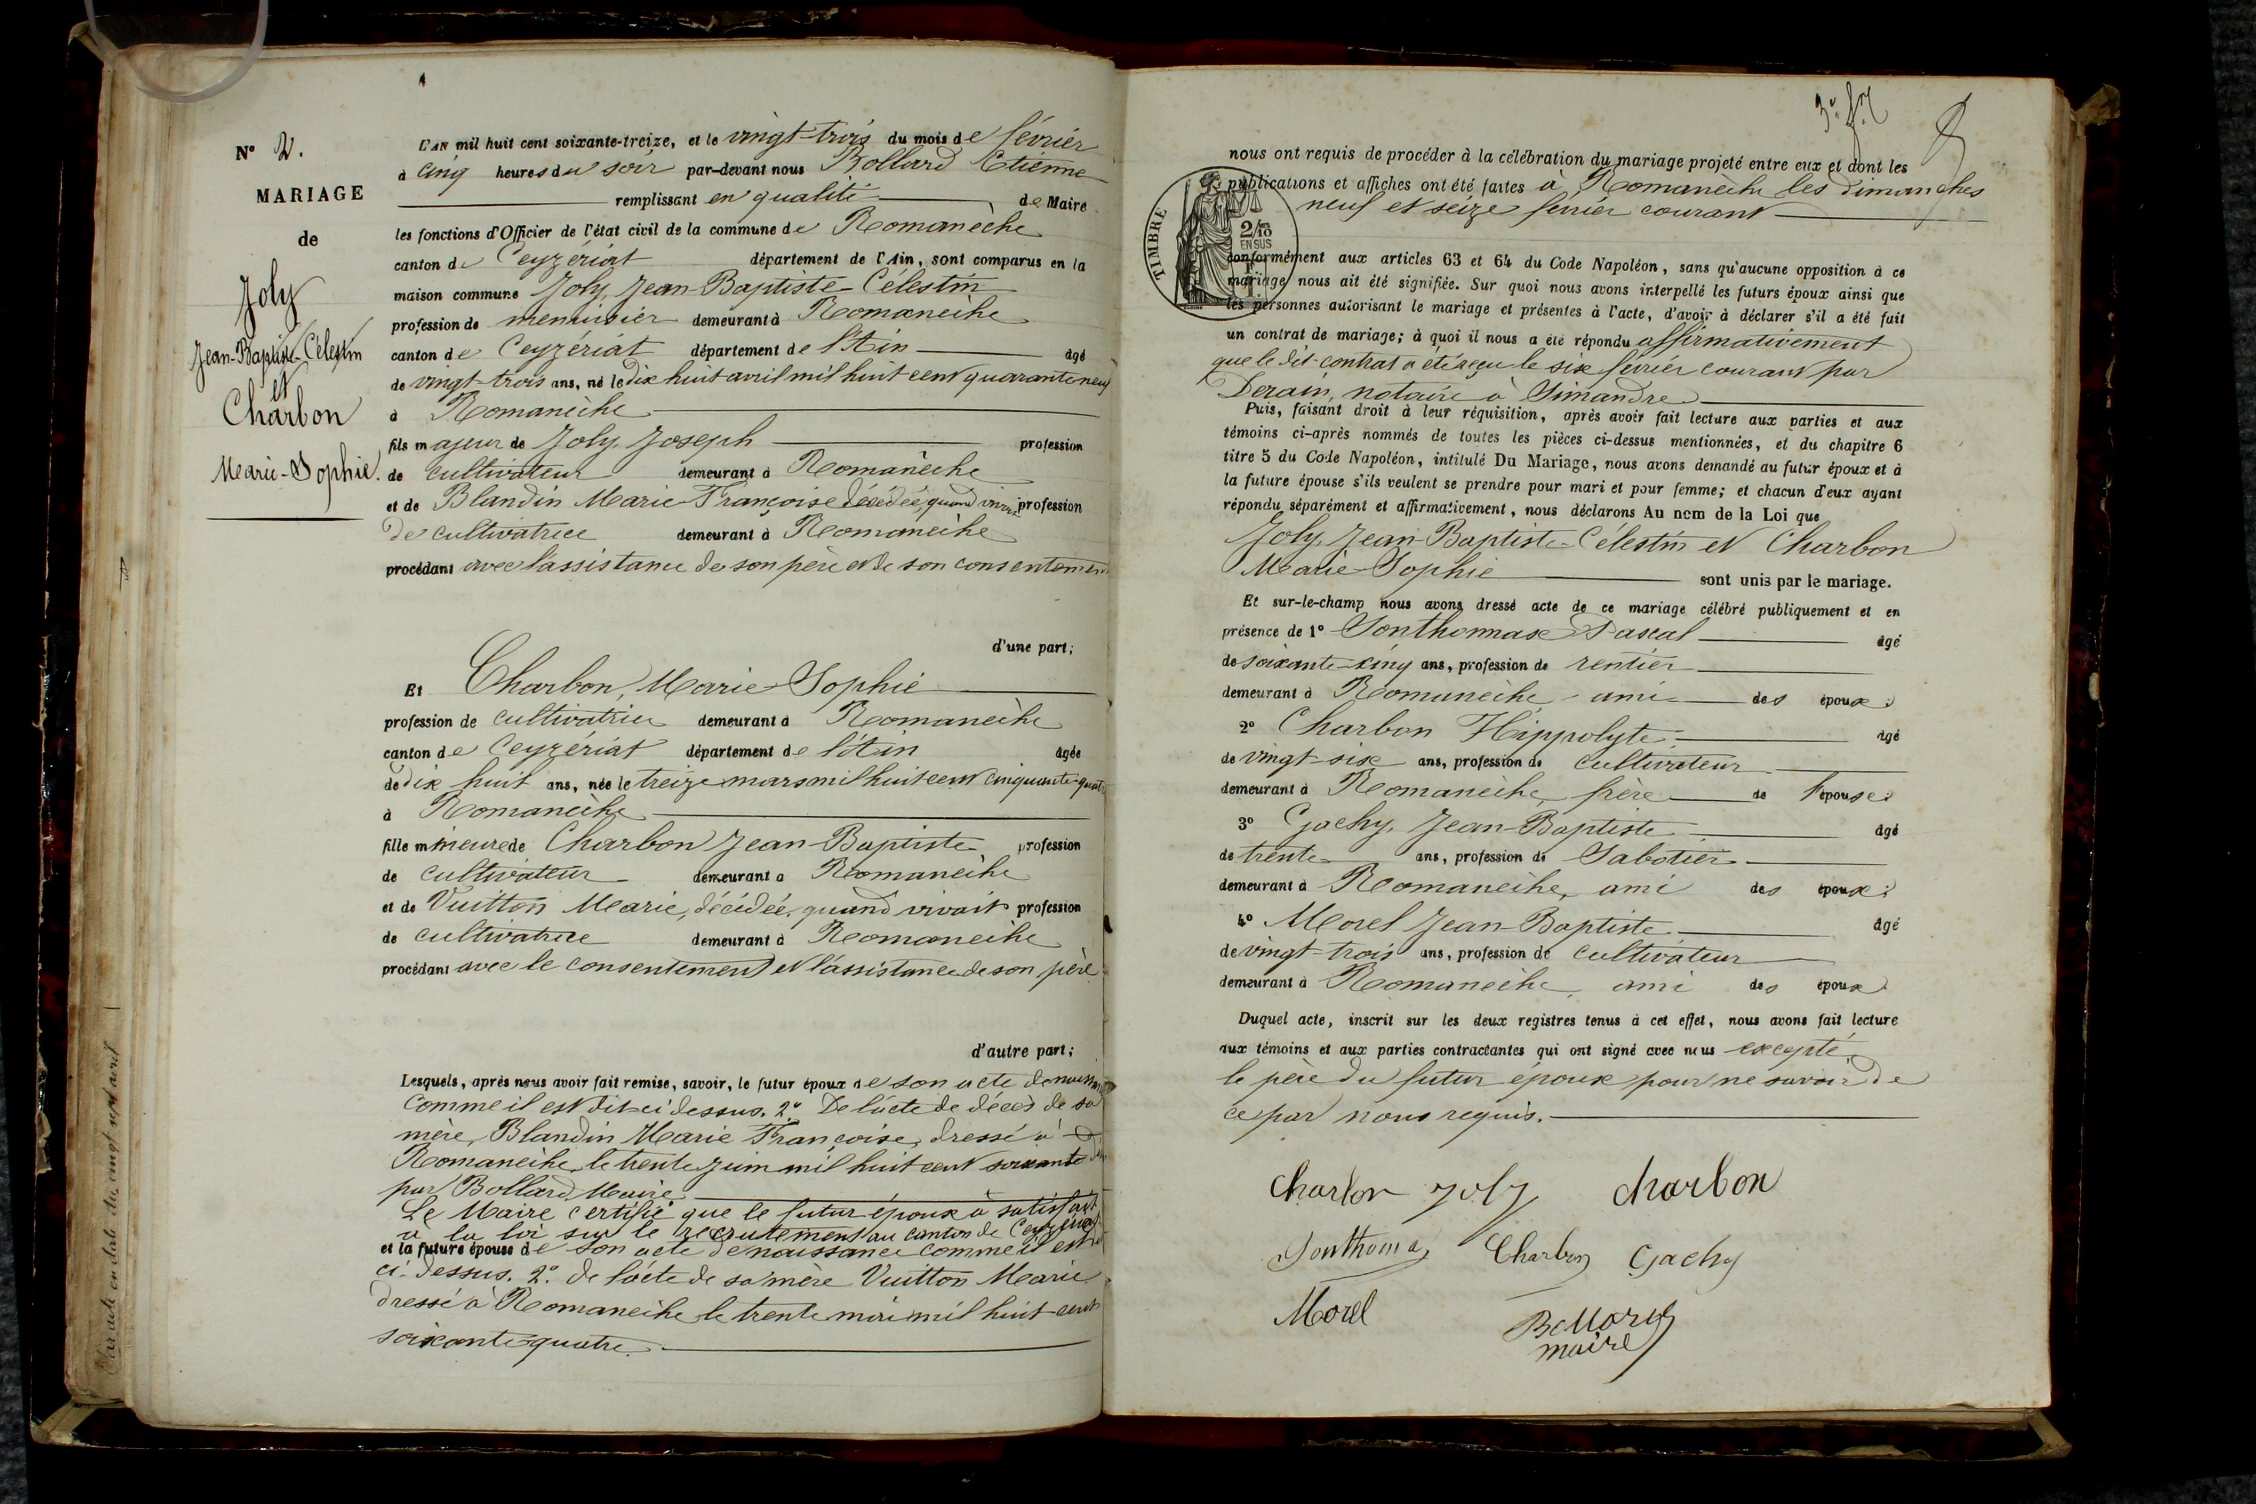 N° 2.
MARIAGE
de
Joly
Jean-Baptiste-Célestin
et
Charbon
Marie-Sophie.
L'AN mil huit cent soixante-treize, et le vingt-trois du mois de février
à cinq heures du soir par-devant nous Bollard Etienne
remplissant en qualité de Maire
les fonctions d'Officier de l'état civil de la commune de Romanèche
canton de Ceyzériat département de l'Ain, sont comparus en la
maison commune Joly, Jean-Baptiste-Célestin
profession de menuisier demeurant à Romanèche
canton de Ceyzériat département de l'Ain âgé
de vingt-trois ans, né le dix huit avril mil huit cent quarante neuf
à Romanèche
fils majeur de Joly, Joseph profession
de cultivateur demeurant à Romanèche
et de Blandin Marie-Françoise décédée, quand vivait profession
de cultivatrice demeurant à Romanèche
procédant avec l'assistance de son père et de son consentement
d'une part;
Et Charbon, Marie-Sophie
profession de cultivatrice demeurant à Romanèche
canton de Ceyzériat département de l'Ain âgée
de dix huit ans, née le treize mars mil huit cent cinquante-quatre
à Romanèche
fille mineure de Charbon Jean-Baptiste profession
de cultivateur demeurant à Romanèche
et de Vuitton Marie, décédée, quand vivait profession
de cultivatrice demeurant à Romanèche
procédant avec le consentement et l'assistance de son père
d'autre part;
Lesquels, après nous avoir fait remise, savoir, le futur époux de son acte de naissance
comme il est dit ci dessus. 2° De l'acte de décès de sa
mère, Blandin Marie Françoise, dressé à
Romanèche, le trente juin mil huit cent soixante
par Bollard, Maire
Le Maire certifie que le futur époux a satisfait
à la loi sur le recrutement au canton de Ceyzériat
et la future épouse de son acte de naissance comme il est dit
ci-dessus. 2° de l'acte de sa mère Vuitton Marie
dressé à Romanèche le trente mai mil huit cent
soixante-quatre.
nous ont requis de procéder à la célébration du mariage projeté entre eux et dont les
publications et affiches ont été faites à Romanèche les dimanches
neuf et seize février courant
TIMBRE
2/10
EN SUS
conformément aux articles 63 et 64 du Code Napoléon, sans qu'aucune opposition à ce
mariage nous ait été signifiée. Sur quoi nous avons interpellé les futurs époux ainsi que
les personnes autorisant le mariage et présentes à l'acte, d'avoir à déclarer s'il a été fait
un contrat de mariage; à quoi il nous a été répondu affirmativement
que le dit contrat a été reçu le six février courant par
Derain, notaire à Simandre
Puis, faisant droit à leur réquisition, après avoir fait lecture aux parties et aux
témoins ci-après nommés de toutes les pièces ci-dessus mentionnées, et du chapitre 6
titre 5 du Code Napoléon, intitulé Du Mariage, nous avons demandé au futur époux et à
la future épouse s'ils veulent se prendre pour mari et pour femme; et chacun d'eux ayant
répondu séparément et affirmativement, nous déclarons Au nom de la Loi que
Joly, Jean-Baptiste-Célestin et Charbon
Marie-Sophie sont unis par le mariage.
Et sur-le-champ nous avons dressé acte de ce mariage célébré publiquement et en
présence de 1° Sonthonnax Pascal âgé
de soixante-cinq ans, profession de rentier
demeurant à Romanèche, ami des époux.
2° Charbon Hippolyte âgé
de vingt-six ans, profession de cultivateur
demeurant à Romanèche, frère de l'épouse.
3° Gachy, Jean-Baptiste âgé
de trente ans, profession de Sabotier
demeurant à Romanèche, ami des époux.
4° Morel Jean-Baptiste âgé
de vingt-trois ans, profession de cultivateur
demeurant à Romanèche, ami des époux
Duquel acte, inscrit sur les deux registres tenus à cet effet, nous avons fait lecture
aux témoins et aux parties contractantes qui ont signé avec nous excepté
le père du futur époux pour ne savoir de
ce par nous requis.
Charbon Joly Charbon
Sonthonnax Charbon Gachy
Morel
Bollard
maire